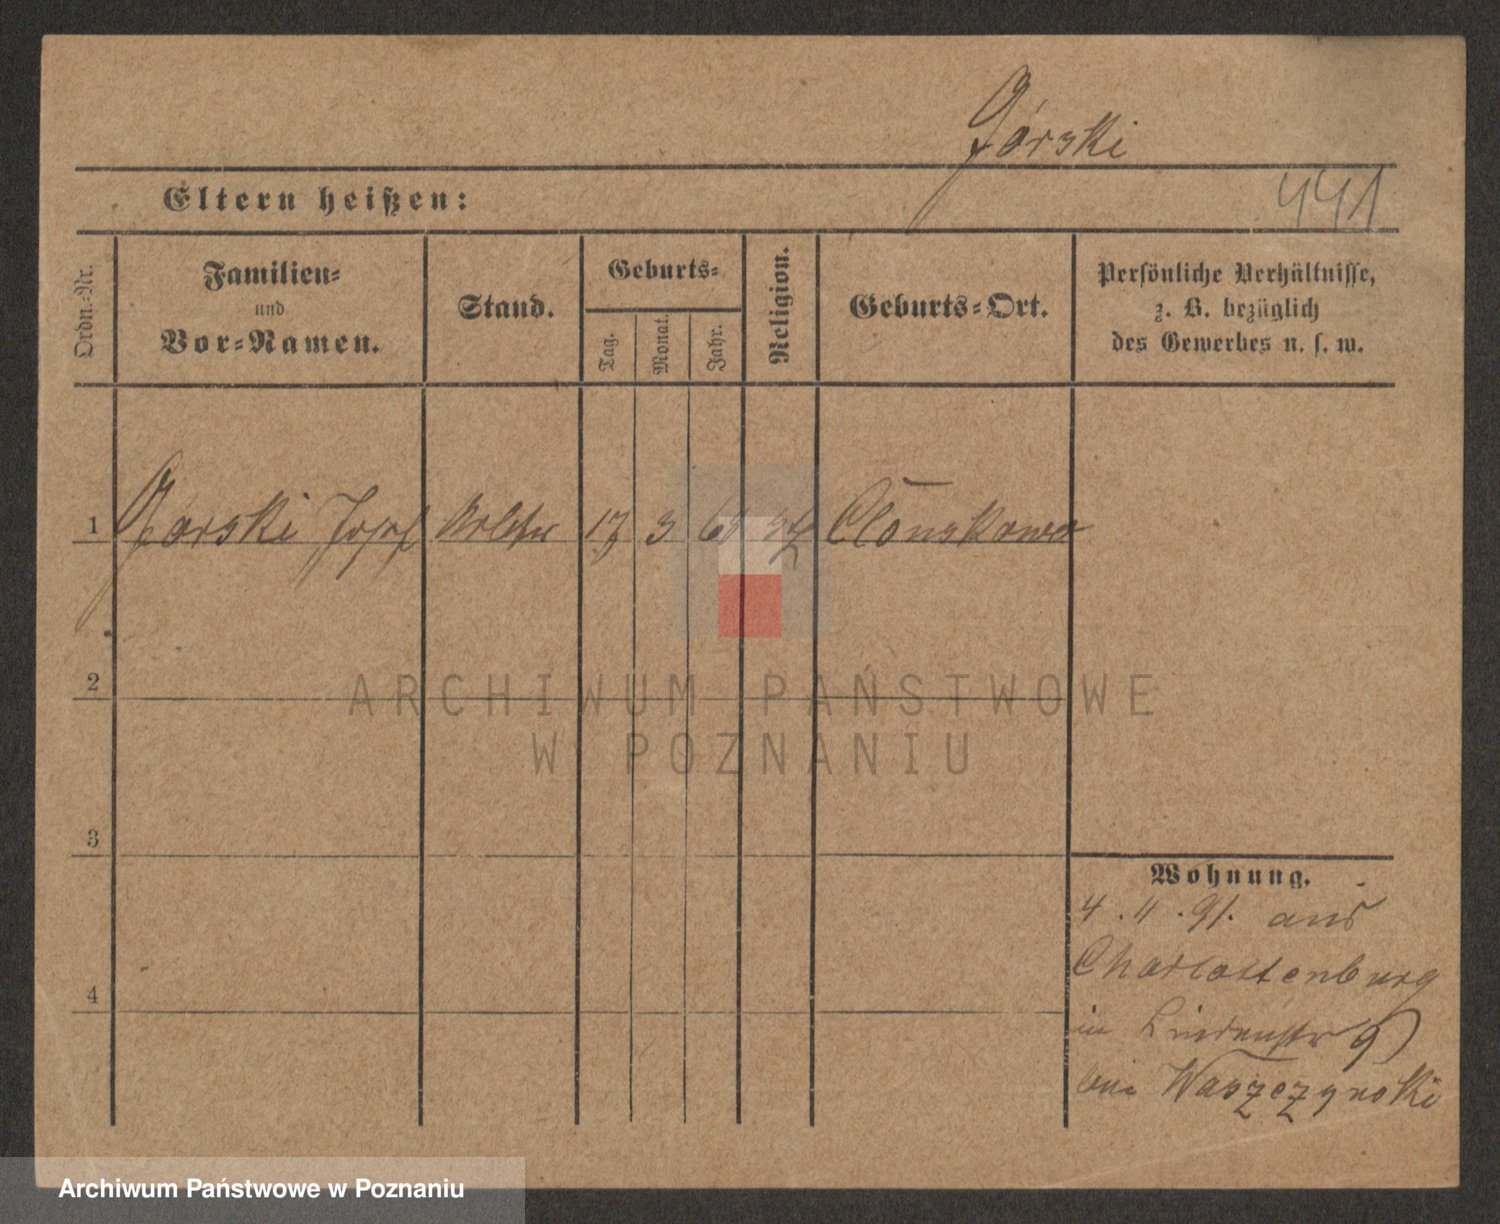 Górski
Eltern heißen:
441
Ordn.-Nr.
Familien-
und
Vor-Namen.
Stand.
Geburts-
Tag.
Monat.
Jahr.
Religion.
Geburts-Ort.
Persönliche Verhältnisse,
z. B. bezüglich
des Gewerbes u. s. w.
1 Górski Josef 3 Clonskowo
2
3
4
Wohnung.
4. 11. 91. aus
Charlottenburg
in Lindenstr 9
bei Waszczynski
ARCHIWUM PAŃSTWOWE
W POZNANIU
Archiwum Państwowe w Poznaniu